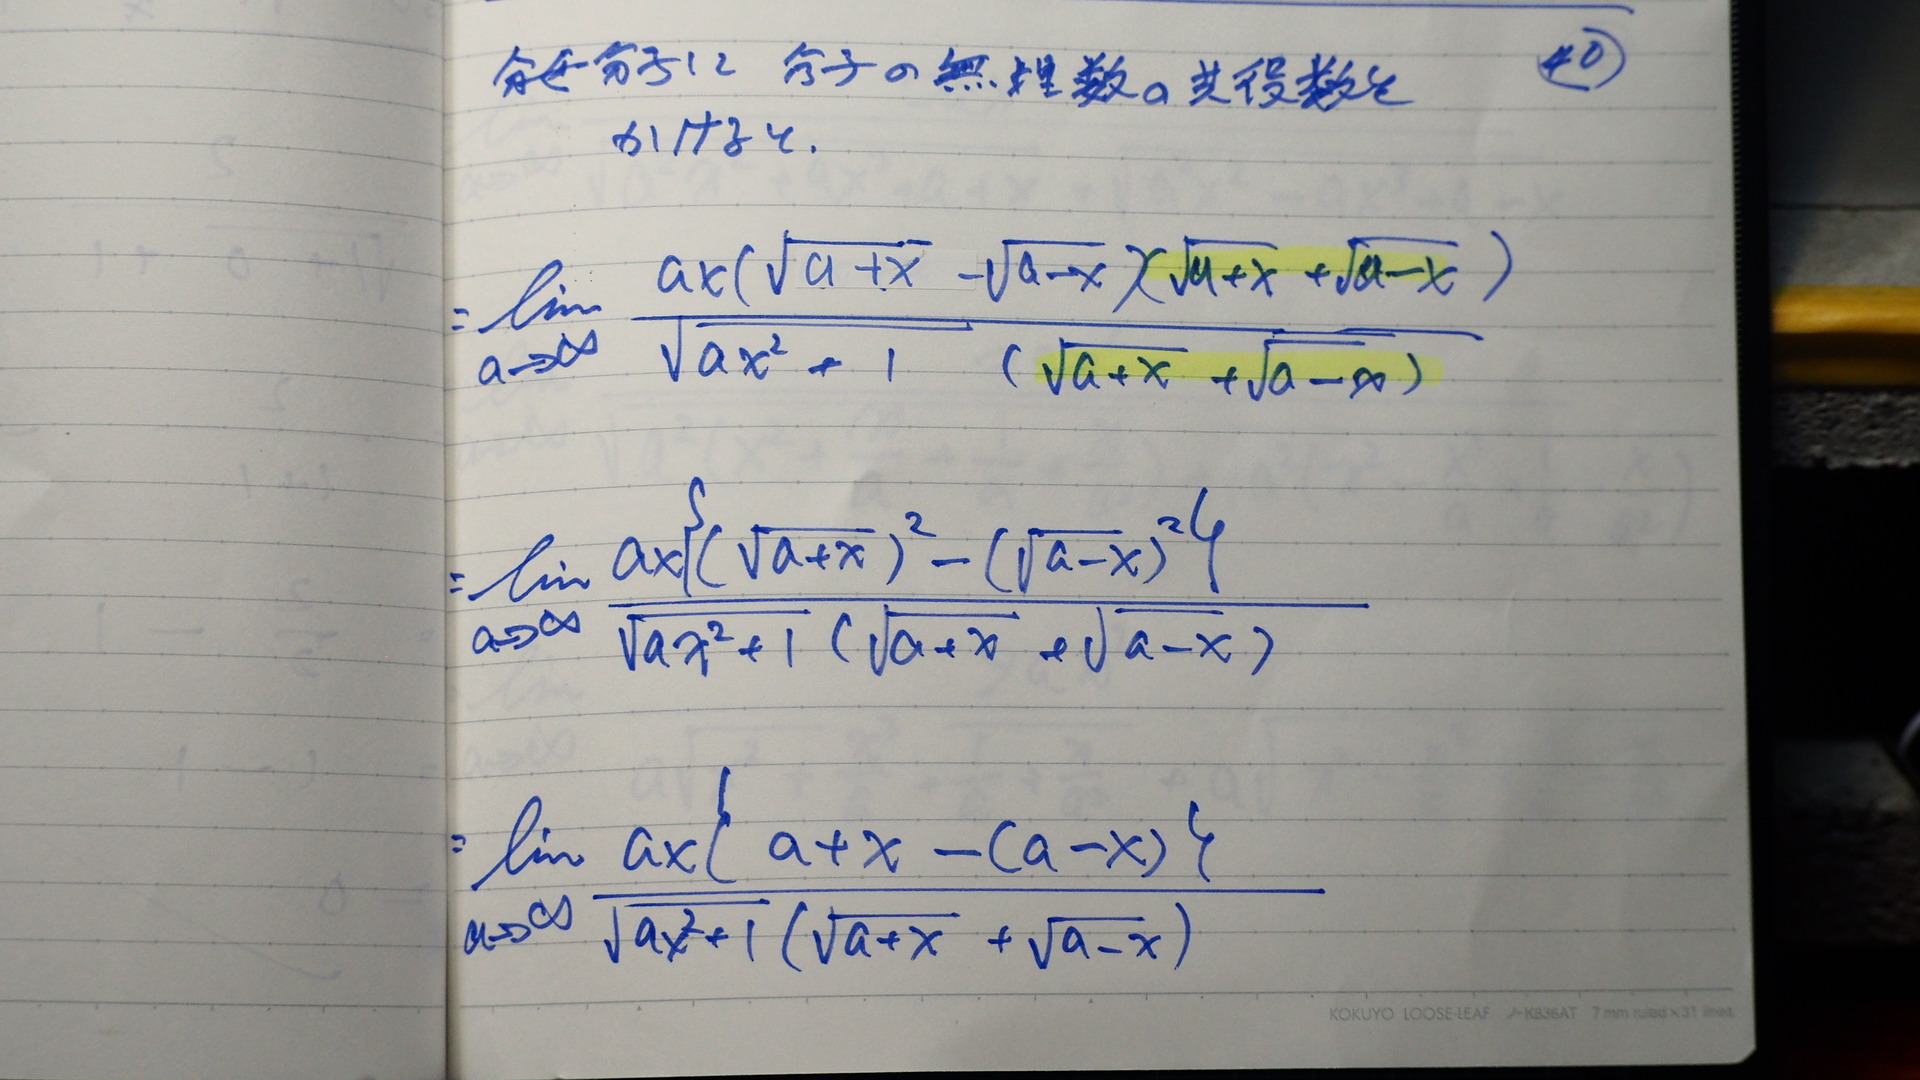 分母分子に 分子の無理数の共役数を
かけると.
= lim a→∞ ax(√(a+x) - √(a-x))(√(a+x) + √(a-x)) / √(ax² + 1) (√(a+x) + √(a-x))
= lim a→∞ ax{(√(a+x))² - (√(a-x))²} / √(ax²+1) (√(a+x) + √(a-x))
= lim a→∞ ax{ a+x - (a-x)} / √(ax²+1) (√(a+x) + √(a-x))
KOKUYO LOOSE-LEAF ノ-K836AT 7 mm ruled×31 lines